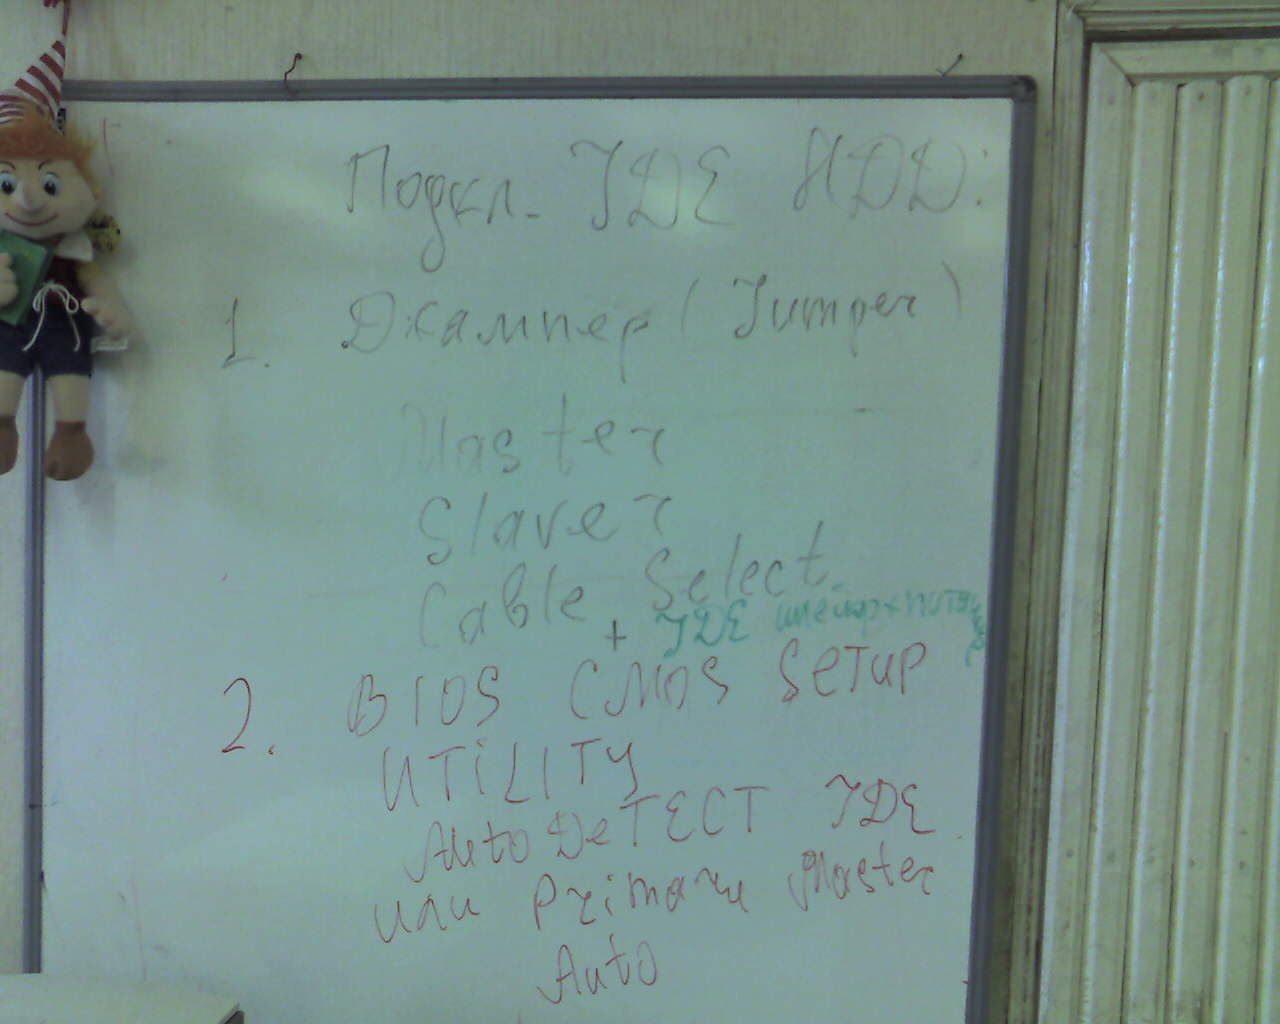 Подкл. IDE HDD:
1. Джампер (Jumper)
Master
Slaver
Cable Select
+ IDE шлейф + питание
2. BIOS CMOS SETUP
UTILITY
Auto DeTECT IDE
или Primary Master
Auto